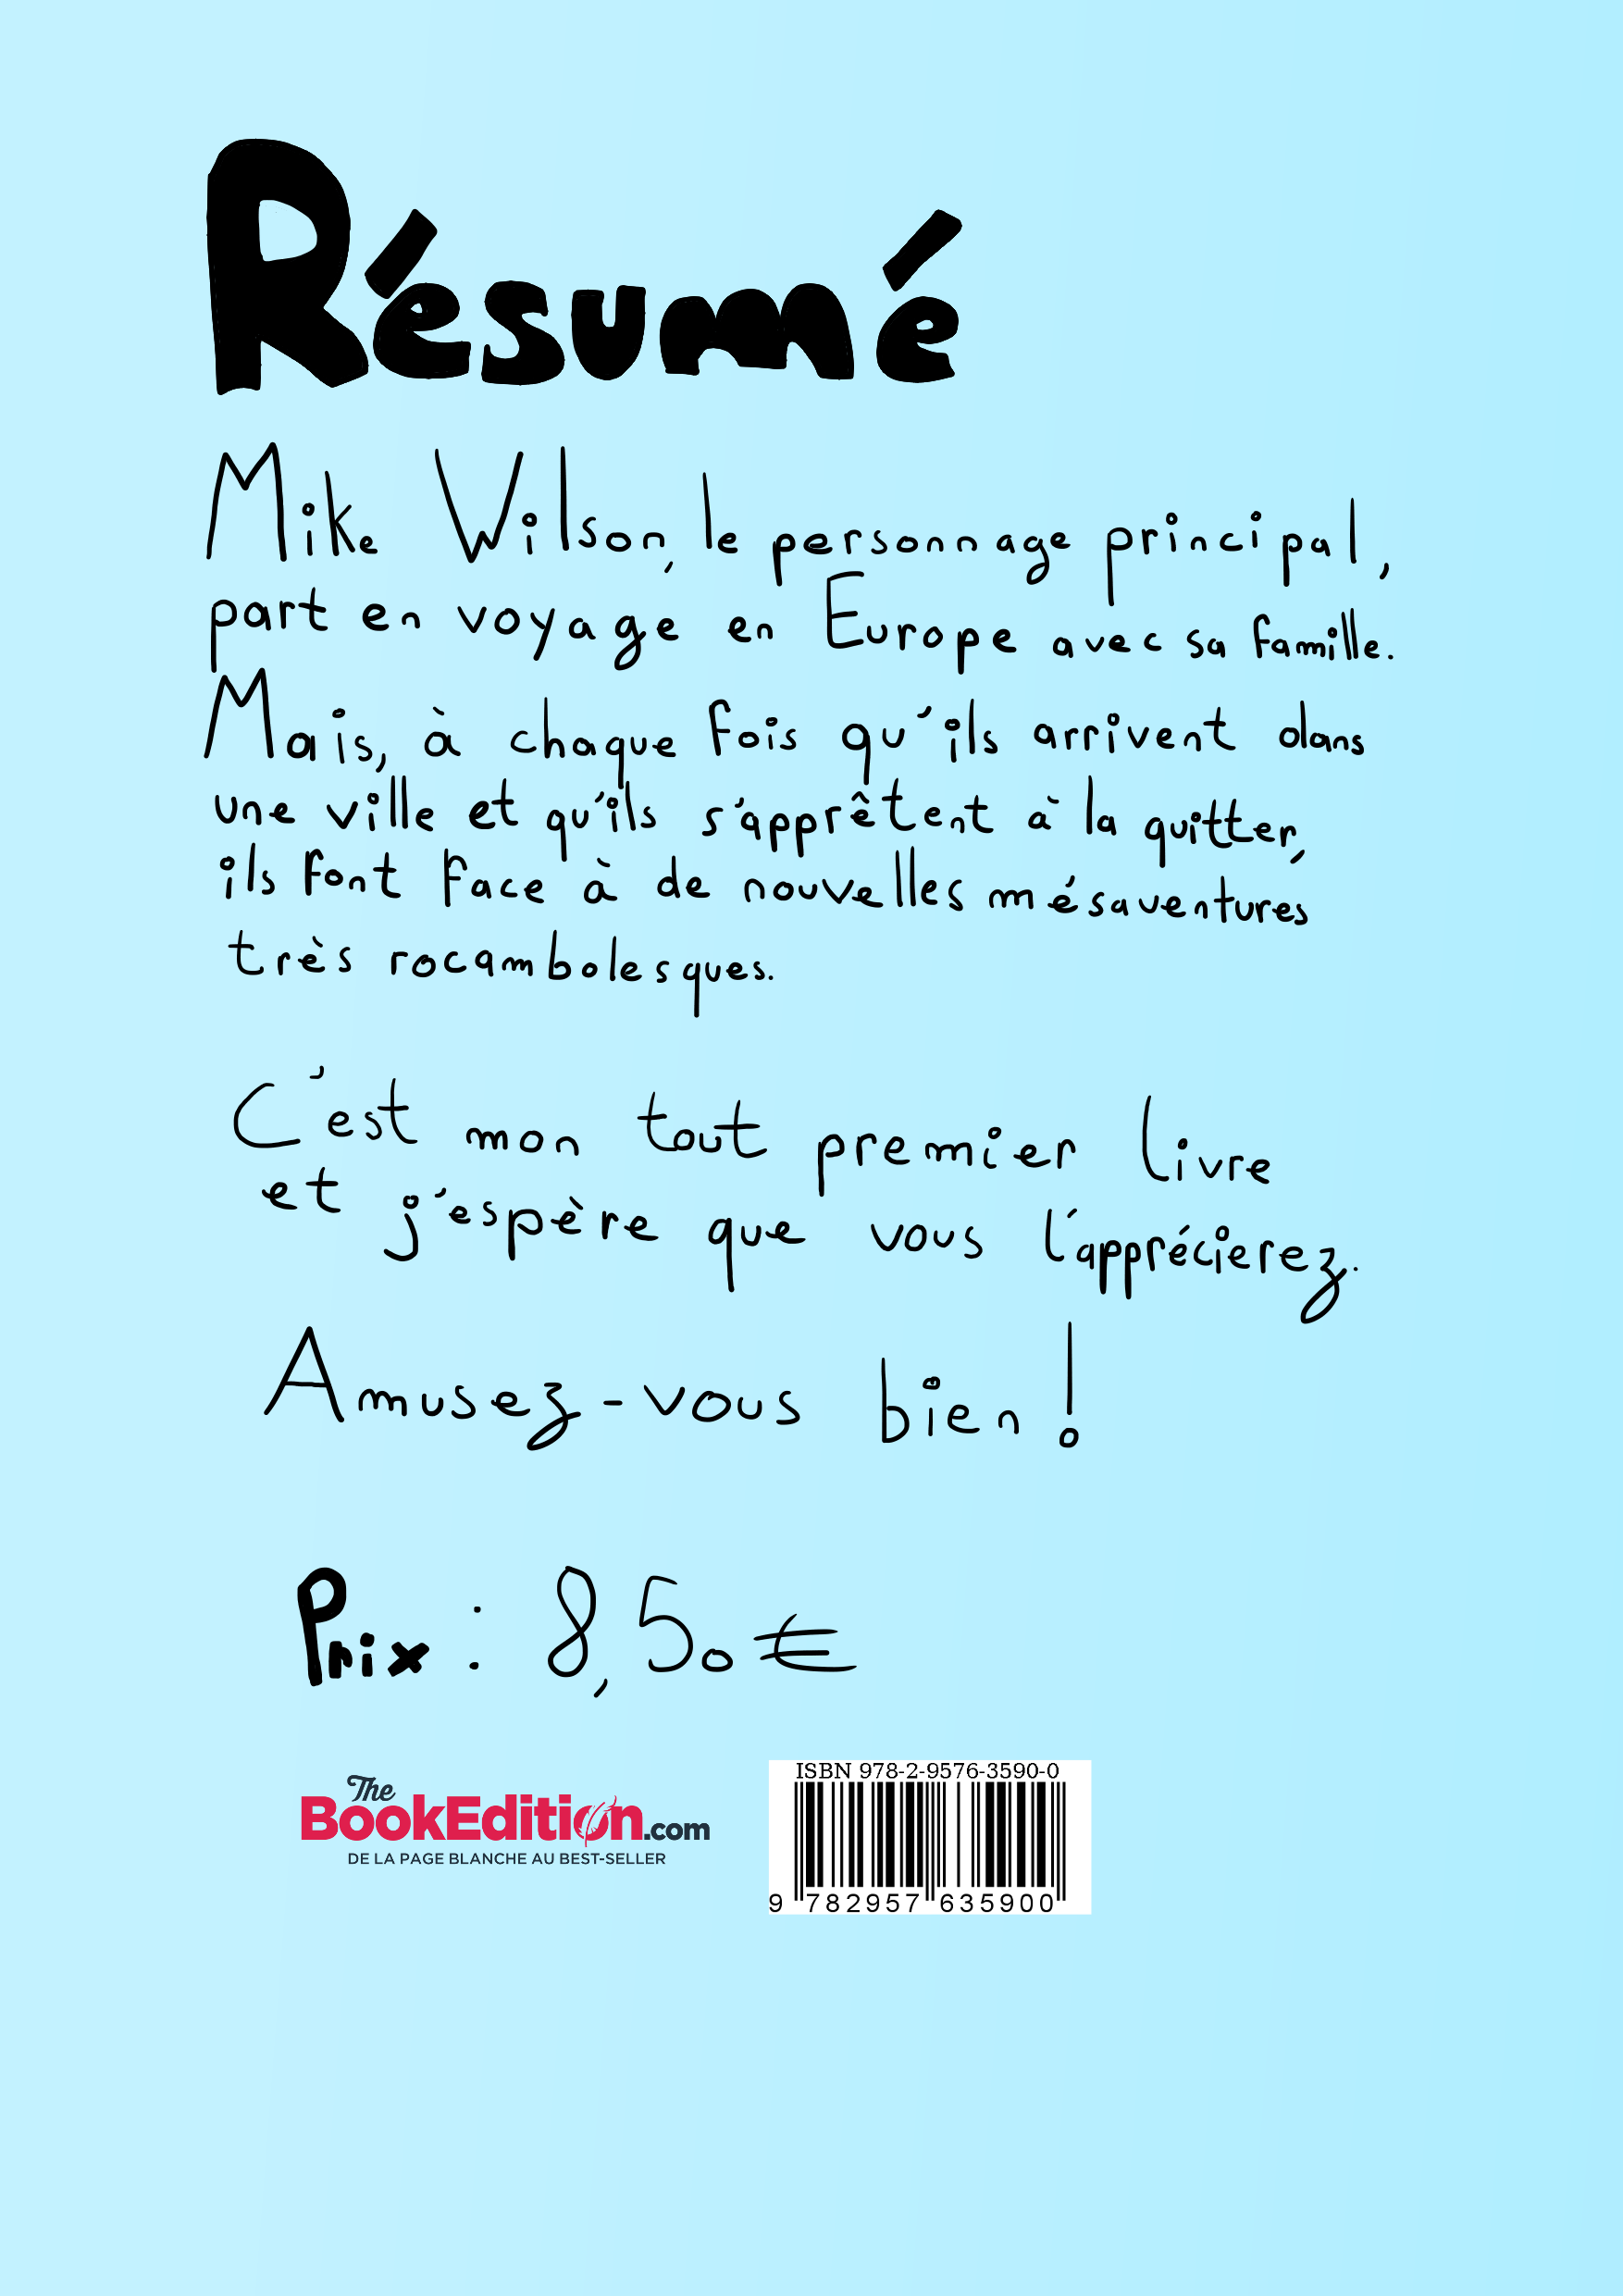 Résumé
Mike Wilson, le personnage principal,
part en voyage en Europe avec sa famille.
Mais, à chaque fois qu'ils arrivent dans
une ville et qu'ils s'apprêtent à la quitter,
ils font face à de nouvelles mésaventures
très rocambolesques.
C'est mon tout premier livre
et j'espère que vous l'apprécierez.
Amusez-vous bien !
Prix : 8,50€
The
BookEdition.com
DE LA PAGE BLANCHE AU BEST-SELLER
ISBN 978-2-9576-3590-0
9 782957 635900